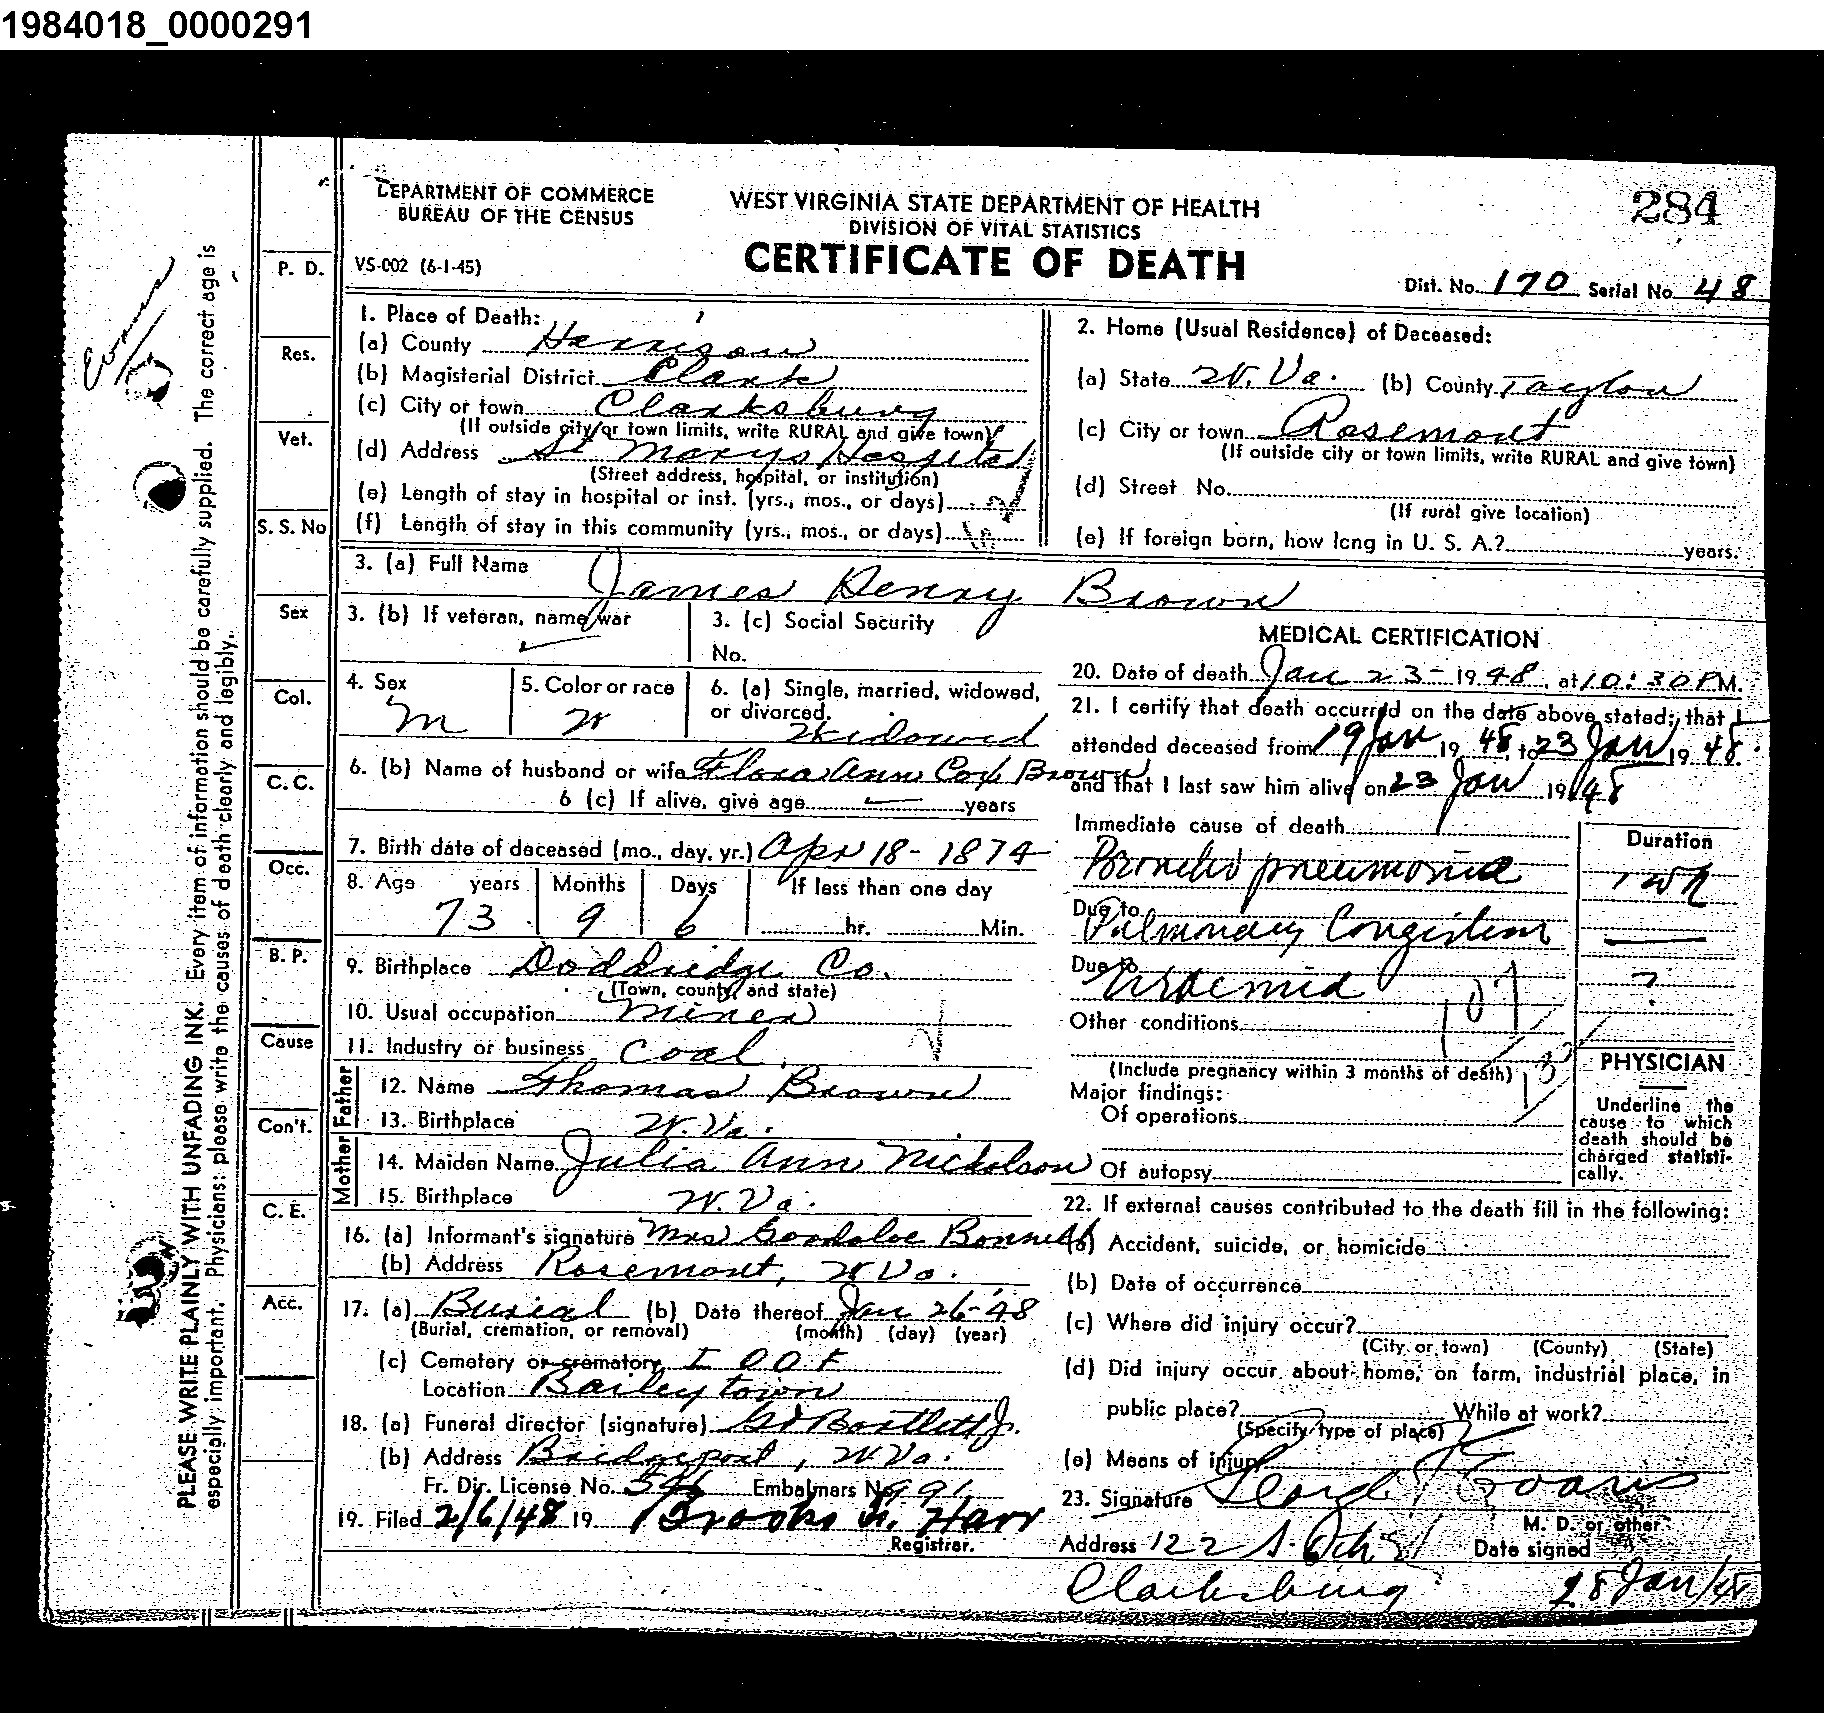 1984018_0000291
DEPARTMENT OF COMMERCE
BUREAU OF THE CENSUS
WEST VIRGINIA STATE DEPARTMENT OF HEALTH
DIVISION OF VITAL STATISTICS
CERTIFICATE OF DEATH
284
VS-002 (6-1-45)
Dist. No. 170 Serial No. 48
1. Place of Death:
(a) County Harrison
(b) Magisterial District Clark
(c) City or town Clarksburg
(If outside city or town limits, write RURAL and give town)
(d) Address St Marys Hospital
(Street address, hospital, or institution)
(e) Length of stay in hospital or inst. (yrs., mos., or days)
(f) Length of stay in this community (yrs., mos., or days)
2. Home (Usual Residence) of Deceased:
(a) State W. Va. (b) County Taylor
(c) City or town Rosemont
(If outside city or town limits, write RURAL and give town)
(d) Street No.
(If rural give location)
(e) If foreign born, how long in U. S. A.? years.
3. (a) Full Name James Henry Brown
3. (b) If veteran, name war
3. (c) Social Security
No.
4. Sex M
5. Color or race W
6. (a) Single, married, widowed,
or divorced. Widowed
6. (b) Name of husband or wife Flora Ann Cox Brown
6 (c) If alive, give age years
7. Birth date of deceased (mo., day, yr.) Apr 18 - 1874
8. Age years Months Days If less than one day
73 9 6 hr. Min.
9. Birthplace Doddridge Co.
(Town, county, and state)
10. Usual occupation Miner
11. Industry or business Coal
Father
12. Name Thomas Brown
13. Birthplace W. Va.
Mother
14. Maiden Name Julia Ann Nicholson
15. Birthplace W. Va.
16. (a) Informant's signature Mrs Goodaloe Bonnett
(b) Address Rosemont, W Va.
17. (a) Burial (b) Date thereof Jan 26-'48
(Burial, cremation, or removal) (month) (day) (year)
(c) Cemetery or crematory I O O F
Location Baileytown
18. (a) Funeral director (signature) Bartlett Jr.
(b) Address Bridgeport, W Va.
Fr. Dir. License No. Embalmers No. 991
19. Filed 2/6/48 19 Brooks Harr
Registrar.
MEDICAL CERTIFICATION
20. Date of death Jan 23 - 1948, at 10:30 P.M.
21. I certify that death occurred on the date above stated; that I
attended deceased from 19 Jan 1948, to 23 Jan 1948.
and that I last saw him alive on 23 Jan 1948
Immediate cause of death
Duration
Broncho pneumonia 1 wk
Due to
Pulmonary Congestion
Due to
Uraemia ?
107
Other conditions
(Include pregnancy within 3 months of death)
Major findings:
Of operations
Of autopsy
PHYSICIAN
Underline the
cause to which
death should be
charged statisti-
cally.
22. If external causes contributed to the death fill in the following:
(a) Accident, suicide, or homicide
(b) Date of occurrence
(c) Where did injury occur?
(City or town) (County) (State)
(d) Did injury occur about home, on farm, industrial place, in
public place? While at work?
(Specify type of place)
(e) Means of injury
23. Signature
M. D. or other
Address 122 S. Date signed
Clarksburg 28 Jan/48
P. D.
Res.
Vet.
S. S. No
Sex
Col.
C. C.
Occ.
B. P.
Cause
Con't.
C. E.
Acc.
PLEASE WRITE PLAINLY WITH UNFADING INK. Every item of information should be carefully supplied. The correct age is
especially important. Physicians: please write the causes of death clearly and legibly.